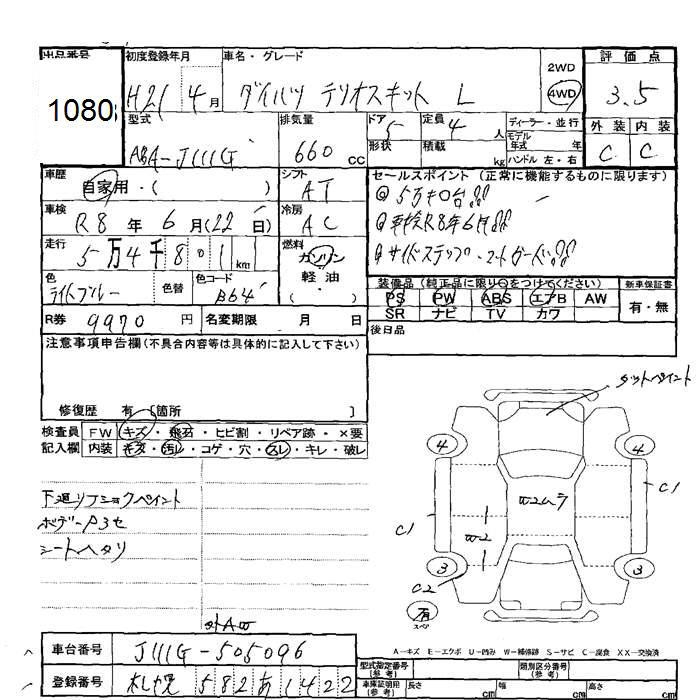 出品番号 初度登録年月 車名・グレード 評価点
1080 H21 4月 ダイハツ テリオスキッド L 2WD 4WD 3.5
型式 排気量 ドア 定員 ディーラー・並行 外装 内装
ABA-J111G 660cc 5 4人 モデル年式 年 C C
形状 積載 kg ハンドル 左・右
車歴 シフト セールスポイント(正常に機能するものに限ります)
自家用・( ) AT ◎5万キロ台!!
車検 冷房 ◎車検R8年6月!!
R8年6月(22日) AC ◎サイドステップ・
走行 燃料
5万4千801km ガソリン
軽油
( ・ )
色 色替 色コード 装備品(純正品に限り○をつけてください) 新車保証書
ライトブルー B64 PS PW ABS エアB AW 有・無
SR ナビ TV カワ
R券 9970円 名変期限 月 日 後日品
注意事項申告欄(不具合内容等は具体的に記入して下さい)
修復歴 有 [箇所 ]
検査員 FW キズ・飛石・ヒビ割・リペア跡・×要
記入欄 内装 キズ・汚レ・コゲ・穴・スレ・キレ・破レ
下廻リ ペイント
ボデー
シートヘタリ
ペイント
4 4
C1 W2ムラ C1
W2
3 3
C2
有
スペア
A-キズ E-エクボ U-凹み W-補修跡 S-サビ C-腐食 XX-交換済
車台番号 J111G-505096
登録番号 札幌 582 あ 1422
型式指定番号(参考) 類別区分番号(参考)
車庫証明用(参考) 長さ cm 幅 cm 高さ cm